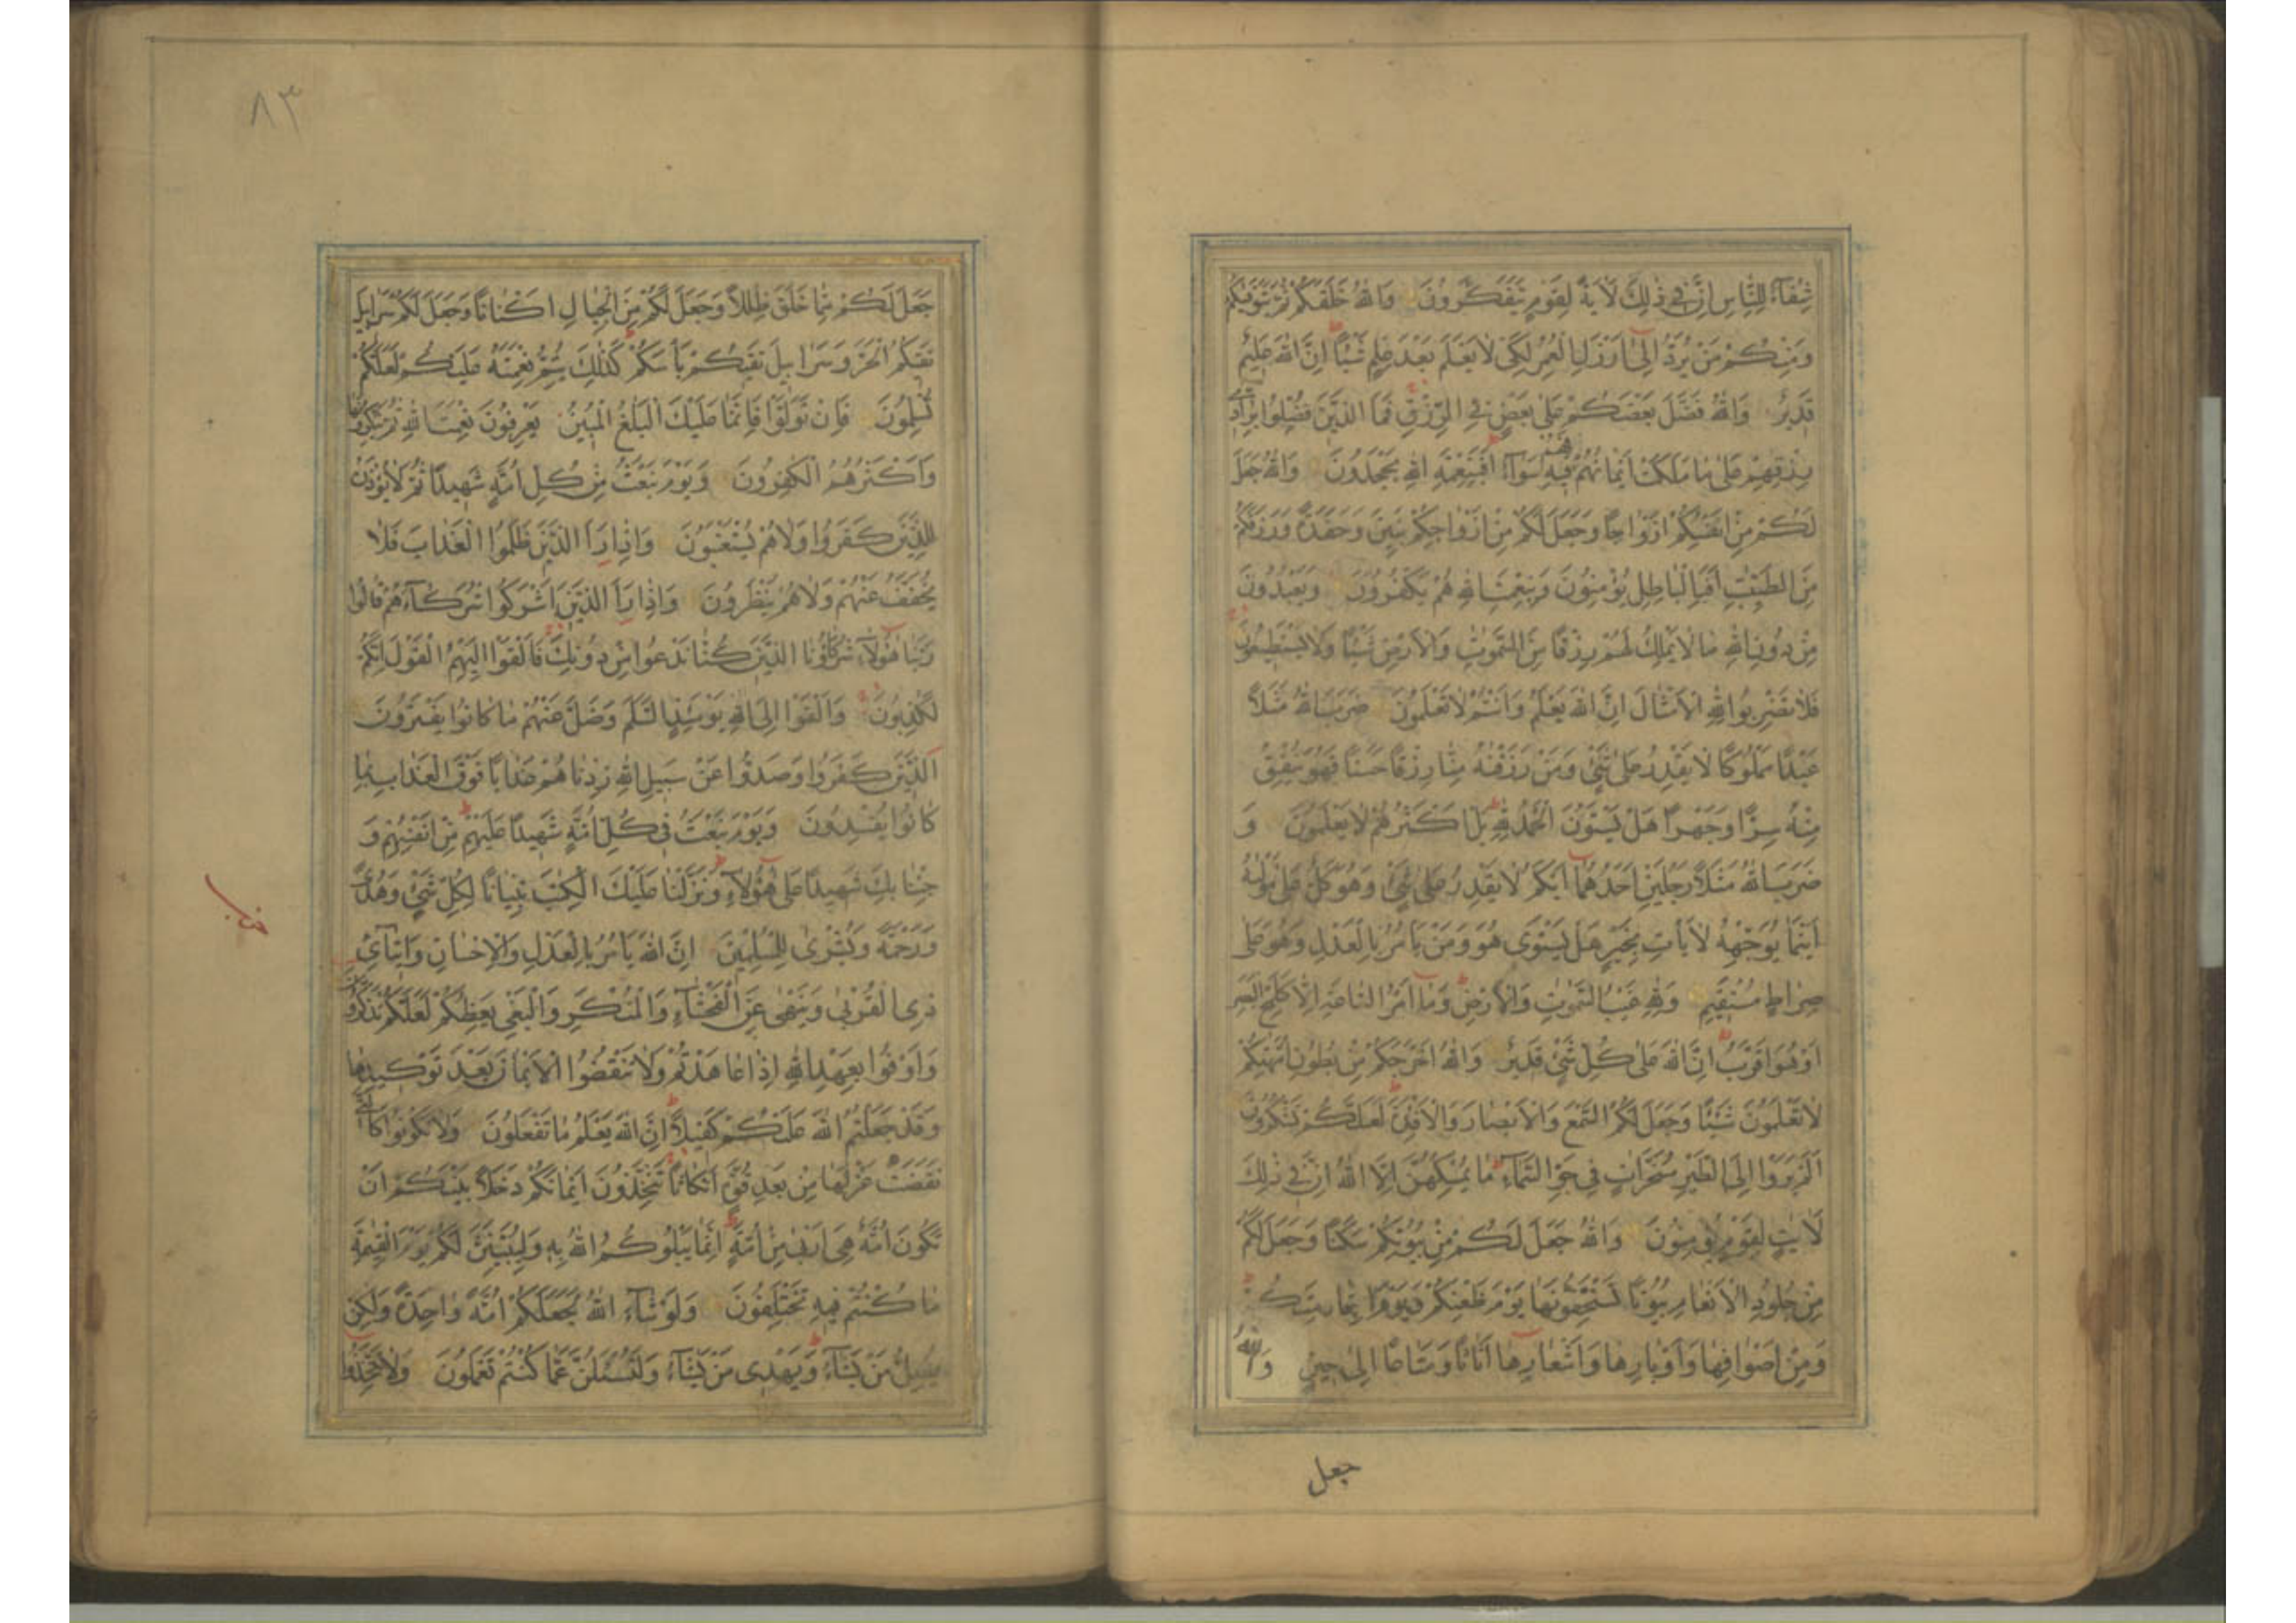 شِفَآءٌ لِلنَّاسِ اِنَّ فٖي ذٰلِكَ لَاٰيَةً لِقَوْمٍ يَتَفَكَّرُونَ وَاللّٰهُ خَلَقَكُمْ ثُمَّ يَتَوَفّٰيكُمْ
وَمِنْكُمْ مَنْ يُرَدُّ اِلٰٓى اَرْذَلِ الْعُمُرِ لِكَىْ لَا يَعْلَمَ بَعْدَ عِلْمٍ شَيْئًا اِنَّ اللّٰهَ عَلِيمٌ
قَدِيرٌ وَاللّٰهُ فَضَّلَ بَعْضَكُمْ عَلٰى بَعْضٍ فِي الرِّزْقِ فَمَا الَّذِينَ فُضِّلُوا بِرَآدّٖي
رِزْقِهِمْ عَلٰى مَا مَلَكَتْ اَيْمَانُهُمْ فَهُمْ فِيهِ سَوَآءٌ اَفَبِنِعْمَةِ اللّٰهِ يَجْحَدُونَ وَاللّٰهُ جَعَلَ
لَكُمْ مِنْ اَنْفُسِكُمْ اَزْوَاجًا وَجَعَلَ لَكُمْ مِنْ اَزْوَاجِكُمْ بَنِينَ وَحَفَدَةً وَرَزَقَكُمْ
مِنَ الطَّيِّبٰتِ اَفَبِالْبَاطِلِ يُؤْمِنُونَ وَبِنِعْمَتِ اللّٰهِ هُمْ يَكْفُرُونَ وَيَعْبُدُونَ
مِنْ دُونِ اللّٰهِ مَا لَا يَمْلِكُ لَهُمْ رِزْقًا مِنَ السَّمٰوٰتِ وَالْاَرْضِ شَيْئًا وَلَا يَسْتَطِيعُونَ
فَلَا تَضْرِبُوا لِلّٰهِ الْاَمْثَالَ اِنَّ اللّٰهَ يَعْلَمُ وَاَنْتُمْ لَا تَعْلَمُونَ ضَرَبَ اللّٰهُ مَثَلًا
عَبْدًا مَمْلُوكًا لَا يَقْدِرُ عَلٰى شَيْءٍ وَمَنْ رَزَقْنٰهُ مِنَّا رِزْقًا حَسَنًا فَهُوَ يُنْفِقُ
مِنْهُ سِرًّا وَجَهْرًا هَلْ يَسْتَوُنَ اَلْحَمْدُ لِلّٰهِ بَلْ اَكْثَرُهُمْ لَا يَعْلَمُونَ وَ
ضَرَبَ اللّٰهُ مَثَلًا رَجُلَيْنِ اَحَدُهُمَآ اَبْكَمُ لَا يَقْدِرُ عَلٰى شَيْءٍ وَهُوَ كَلٌّ عَلٰى مَوْلٰيهُ
اَيْنَمَا يُوَجِّهْهُ لَا يَأْتِ بِخَيْرٍ هَلْ يَسْتَوِي هُوَ وَمَنْ يَأْمُرُ بِالْعَدْلِ وَهُوَ عَلٰى
صِرَاطٍ مُسْتَقِيمٍ وَلِلّٰهِ غَيْبُ السَّمٰوٰتِ وَالْاَرْضِ وَمَآ اَمْرُ السَّاعَةِ اِلَّا كَلَمْحِ الْبَصَرِ
اَوْ هُوَ اَقْرَبُ اِنَّ اللّٰهَ عَلٰى كُلِّ شَيْءٍ قَدِيرٌ وَاللّٰهُ اَخْرَجَكُمْ مِنْ بُطُونِ اُمَّهٰتِكُمْ
لَا تَعْلَمُونَ شَيْئًا وَجَعَلَ لَكُمُ السَّمْعَ وَالْاَبْصَارَ وَالْاَفْئِدَةَ لَعَلَّكُمْ تَشْكُرُونَ
اَلَمْ يَرَوْا اِلَى الطَّيْرِ مُسَخَّرَاتٍ فِي جَوِّ السَّمَآءِ مَا يُمْسِكُهُنَّ اِلَّا اللّٰهُ اِنَّ فِي ذٰلِكَ
لَاٰيٰتٍ لِقَوْمٍ يُؤْمِنُونَ وَاللّٰهُ جَعَلَ لَكُمْ مِنْ بُيُوتِكُمْ سَكَنًا وَجَعَلَ لَكُمْ
مِنْ جُلُودِ الْاَنْعَامِ بُيُوتًا تَسْتَخِفُّونَهَا يَوْمَ ظَعْنِكُمْ وَيَوْمَ اِقَامَتِكُمْ
وَمِنْ اَصْوَافِهَا وَاَوْبَارِهَا وَاَشْعَارِهَآ اَثَاثًا وَمَتَاعًا اِلٰى حِينٍ وَاللّٰهُ
جعل
٨٣
جَعَلَ لَكُمْ مِمَّا خَلَقَ ظِلٰلًا وَجَعَلَ لَكُمْ مِنَ الْجِبَالِ اَكْنَانًا وَجَعَلَ لَكُمْ سَرَابِيلَ
تَقِيكُمُ الْحَرَّ وَسَرَابِيلَ تَقِيكُمْ بَأْسَكُمْ كَذٰلِكَ يُتِمُّ نِعْمَتَهُ عَلَيْكُمْ لَعَلَّكُمْ
تُسْلِمُونَ فَاِنْ تَوَلَّوْا فَاِنَّمَا عَلَيْكَ الْبَلٰغُ الْمُبِينُ يَعْرِفُونَ نِعْمَتَ اللّٰهِ ثُمَّ يُنْكِرُونَهَا
وَاَكْثَرُهُمُ الْكٰفِرُونَ وَيَوْمَ نَبْعَثُ مِنْ كُلِّ اُمَّةٍ شَهِيدًا ثُمَّ لَا يُؤْذَنُ
لِلَّذِينَ كَفَرُوا وَلَا هُمْ يُسْتَعْتَبُونَ وَاِذَا رَاَ الَّذِينَ ظَلَمُوا الْعَذَابَ فَلَا
يُخَفَّفُ عَنْهُمْ وَلَا هُمْ يُنْظَرُونَ وَاِذَا رَاَ الَّذِينَ اَشْرَكُوا شُرَكَآءَهُمْ قَالُوا
رَبَّنَا هٰٓؤُلَآءِ شُرَكَآؤُنَا الَّذِينَ كُنَّا نَدْعُوا مِنْ دُونِكَ فَاَلْقَوْا اِلَيْهِمُ الْقَوْلَ اِنَّكُمْ
لَكٰذِبُونَ وَاَلْقَوْا اِلَى اللّٰهِ يَوْمَئِذٍ السَّلَمَ وَضَلَّ عَنْهُمْ مَا كَانُوا يَفْتَرُونَ
اَلَّذِينَ كَفَرُوا وَصَدُّوا عَنْ سَبِيلِ اللّٰهِ زِدْنَاهُمْ عَذَابًا فَوْقَ الْعَذَابِ بِمَا
كَانُوا يُفْسِدُونَ وَيَوْمَ نَبْعَثُ فِي كُلِّ اُمَّةٍ شَهِيدًا عَلَيْهِمْ مِنْ اَنْفُسِهِمْ وَ
جِئْنَا بِكَ شَهِيدًا عَلٰى هٰٓؤُلَآءِ وَنَزَّلْنَا عَلَيْكَ الْكِتٰبَ تِبْيَانًا لِكُلِّ شَيْءٍ وَهُدًى
وَرَحْمَةً وَبُشْرٰى لِلْمُسْلِمِينَ اِنَّ اللّٰهَ يَأْمُرُ بِالْعَدْلِ وَالْاِحْسَانِ وَاِيتَآئِ
ذِي الْقُرْبٰى وَيَنْهٰى عَنِ الْفَحْشَآءِ وَالْمُنْكَرِ وَالْبَغْيِ يَعِظُكُمْ لَعَلَّكُمْ تَذَكَّرُونَ
وَاَوْفُوا بِعَهْدِ اللّٰهِ اِذَا عَاهَدْتُمْ وَلَا تَنْقُضُوا الْاَيْمَانَ بَعْدَ تَوْكِيدِهَا
وَقَدْ جَعَلْتُمُ اللّٰهَ عَلَيْكُمْ كَفِيلًا اِنَّ اللّٰهَ يَعْلَمُ مَا تَفْعَلُونَ وَلَا تَكُونُوا كَالَّتِي
نَقَضَتْ غَزْلَهَا مِنْ بَعْدِ قُوَّةٍ اَنْكَاثًا تَتَّخِذُونَ اَيْمَانَكُمْ دَخَلًا بَيْنَكُمْ اَنْ
تَكُونَ اُمَّةٌ هِيَ اَرْبٰى مِنْ اُمَّةٍ اِنَّمَا يَبْلُوكُمُ اللّٰهُ بِهِ وَلَيُبَيِّنَنَّ لَكُمْ يَوْمَ الْقِيٰمَةِ
مَا كُنْتُمْ فِيهِ تَخْتَلِفُونَ وَلَوْ شَآءَ اللّٰهُ لَجَعَلَكُمْ اُمَّةً وَاحِدَةً وَلٰكِنْ
يُضِلُّ مَنْ يَشَآءُ وَيَهْدِي مَنْ يَشَآءُ وَلَتُسْئَلُنَّ عَمَّا كُنْتُمْ تَعْمَلُونَ وَلَا تَتَّخِذُوا
حزب